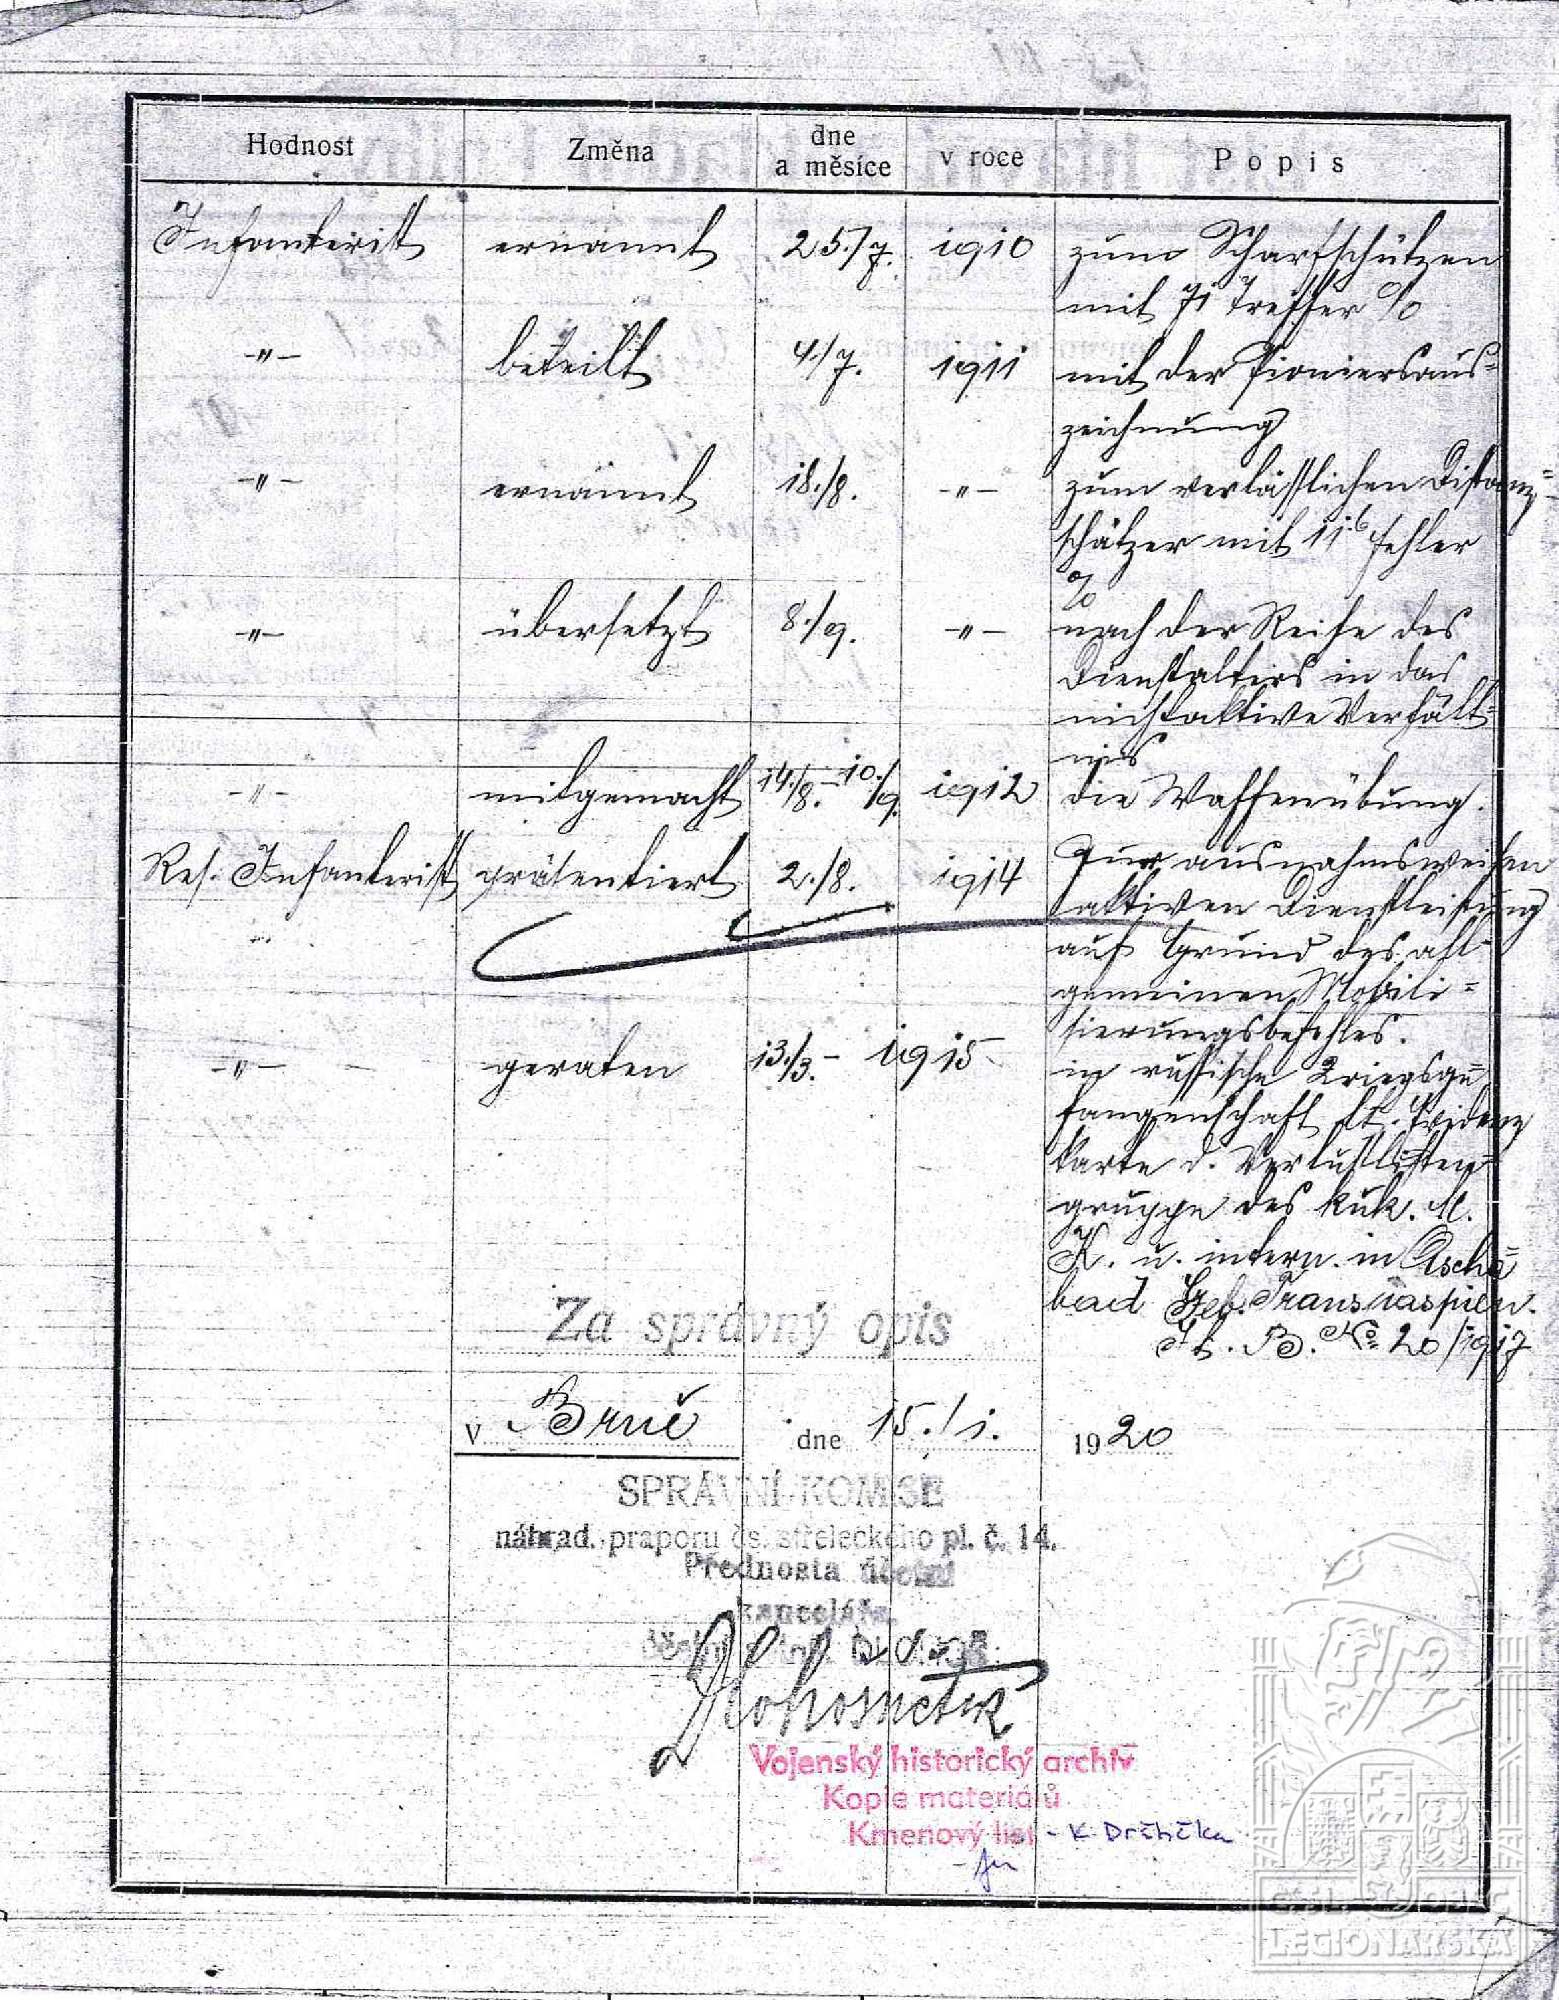 Hodnost Změna dne a měsíce v roce Popis
Infanterist ernannt 25./7. 1910 zum Scharfschützen
mit 71 Treffer %
-"- beteilt 4./7. 1911 mit der Pioniersaus=
zeichnung
-"- ernannt 18./8. -"- zum verlässlichen Distanz=
schätzer mit 11·6 Fehler
%
-"- übersetzt 8./9. -"- nach der Reihe des
Dienstalters in das
nichtaktive Verhält=
nis
-"- mitgemacht 14./8.-10./9. 1912 die Waffenübung.
Res. Infanterist präsentiert 2./8. 1914 Zur ausnahmsweisen
aktiven Dienstleistung
auf Grund des all
gemeinen Mobili=
sierungsbefehles.
-"- geraten 13./3.- 1915 in russische Kriegsge=
fangenschaft lt. Evidenz
karte d. Verlustlisten=
gruppe des kuk. M.
K. u. intern. in Ascha=
bad Geb. Transcaspien.
No 20/1917
Za správný opis
v Brně dne 15./1. 1920
SPRÁVNÍ KOMISE
náhrad. praporu čs. střeleckého pl. č. 14.
Přednosta účetní
kanceláře.
Vojenský historický archiv
Kopie materiálů
Kmenový list - K. Drběčka
ČSL. OBEC
LEGIONÁŘSKÁ